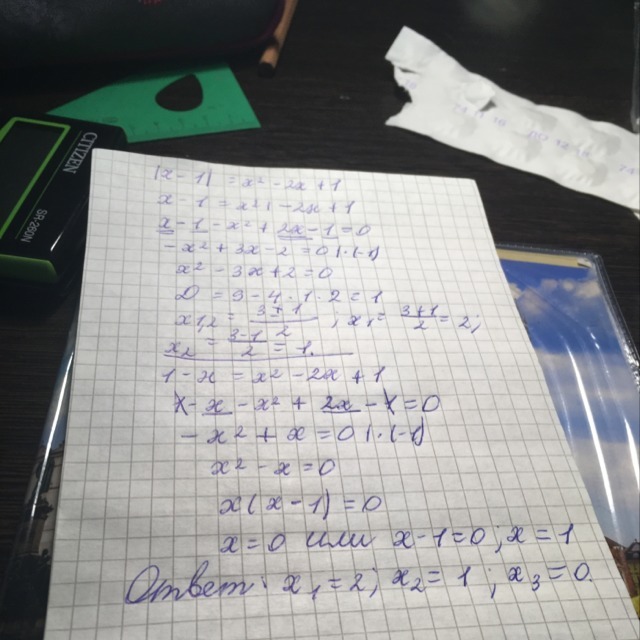 CITIZEN
SR-260N
|x-1| = x² - 2x + 1
x - 1 = x² - 2x + 1
x - 1 - x² + 2x - 1 = 0
-x² + 3x - 2 = 0 | · (-1)
x² - 3x + 2 = 0
D = 9 - 4 · 1 · 2 = 1
x₁,₂ = (3±1)/2 ; x₁ = (3+1)/2 = 2;
x₂ = (3-1)/2 = 1.
1 - x = x² - 2x + 1
1 - x - x² + 2x - 1 = 0
-x² + x = 0 | · (-1)
x² - x = 0
x(x - 1) = 0
x = 0 или x - 1 = 0 ; x = 1
Ответ: x₁ = 2; x₂ = 1 ; x₃ = 0.